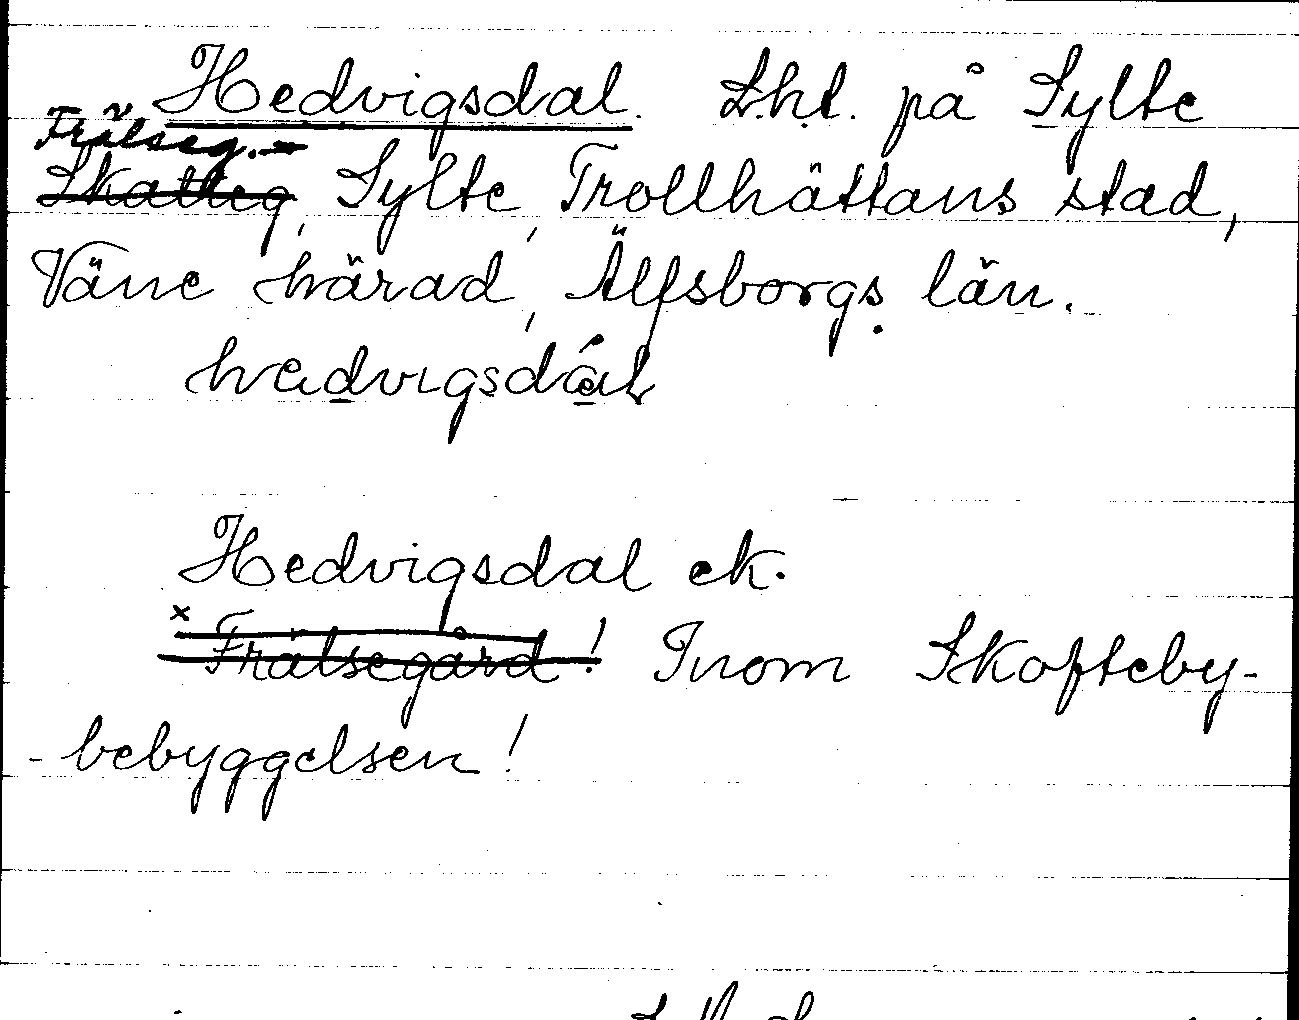 Hedvigsdal. Lht. på Sylte
Frälseg.
Skatteg, Sylte, Trollhättans stad,
Väne härad, Älfsborgs län.
Hedvigsdal ek.
x Frälsegård! Inom Skofteby-
-bebyggelsen!